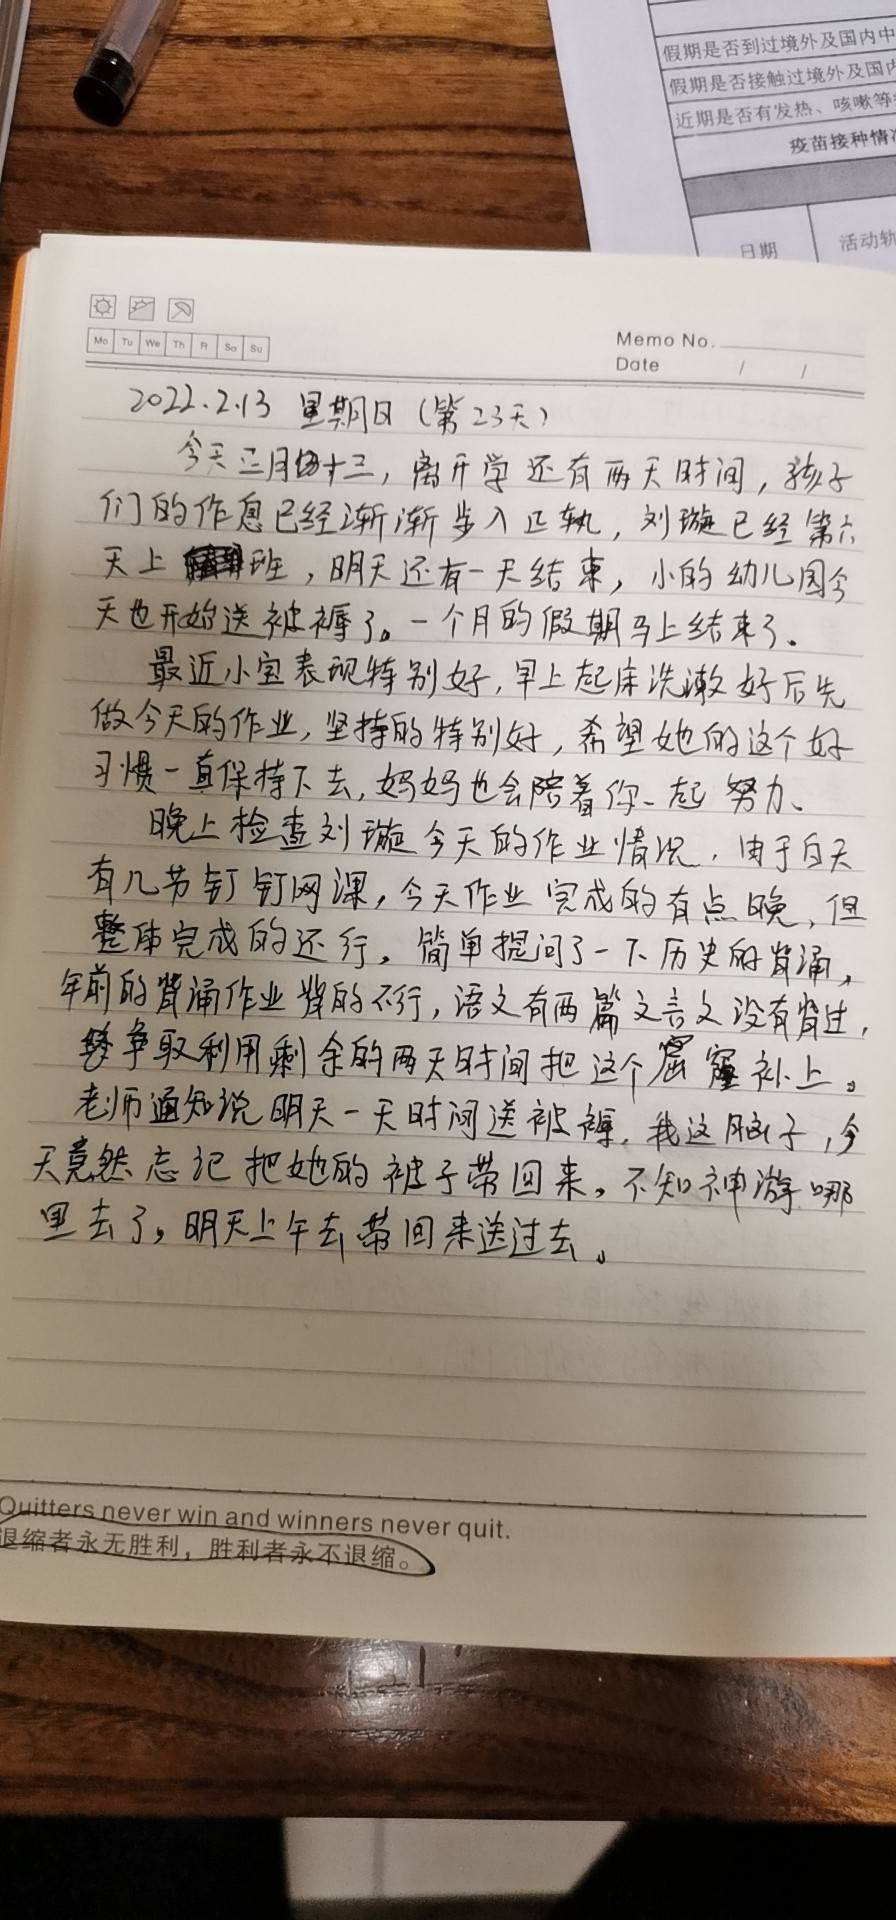 假期是否到过境外及国内中
假期是否接触过境外及国内
近期是否有发热、咳嗽等
疫苗接种情况
日期 活动轨
Mo Tu We Th Fr Sa Su
Memo No.
Date / /
2022.2.13 星期日（第23天）
今天正月十三，离开学还有两天时间，孩子
们的作息已经渐渐步入正轨，刘璇已经第六
天上班，明天还有一天结束，小的幼儿园今
天也开始送被褥了。一个月的假期马上结束了。
最近小宝表现特别好，早上起床洗漱好后先
做今天的作业，坚持的特别好，希望她的这个好
习惯一直保持下去，妈妈也会陪着你一起努力、
晚上检查刘璇今天的作业情况，由于白天
有几节钉钉网课，今天作业完成的有点晚，但
整体完成的还行。简单提问了一下历史的背诵，
年前的背诵作业背的不行，语文有两篇文言文没有背过，
争取利用剩余的两天时间把这个窟窿补上。
老师通知说明天一天时间送被褥，我这脑子，今
天竟然忘记把她的被子带回来。不知神游哪
里去了，明天上午去带回来送过去。
Quitters never win and winners never quit.
退缩者永无胜利，胜利者永不退缩。